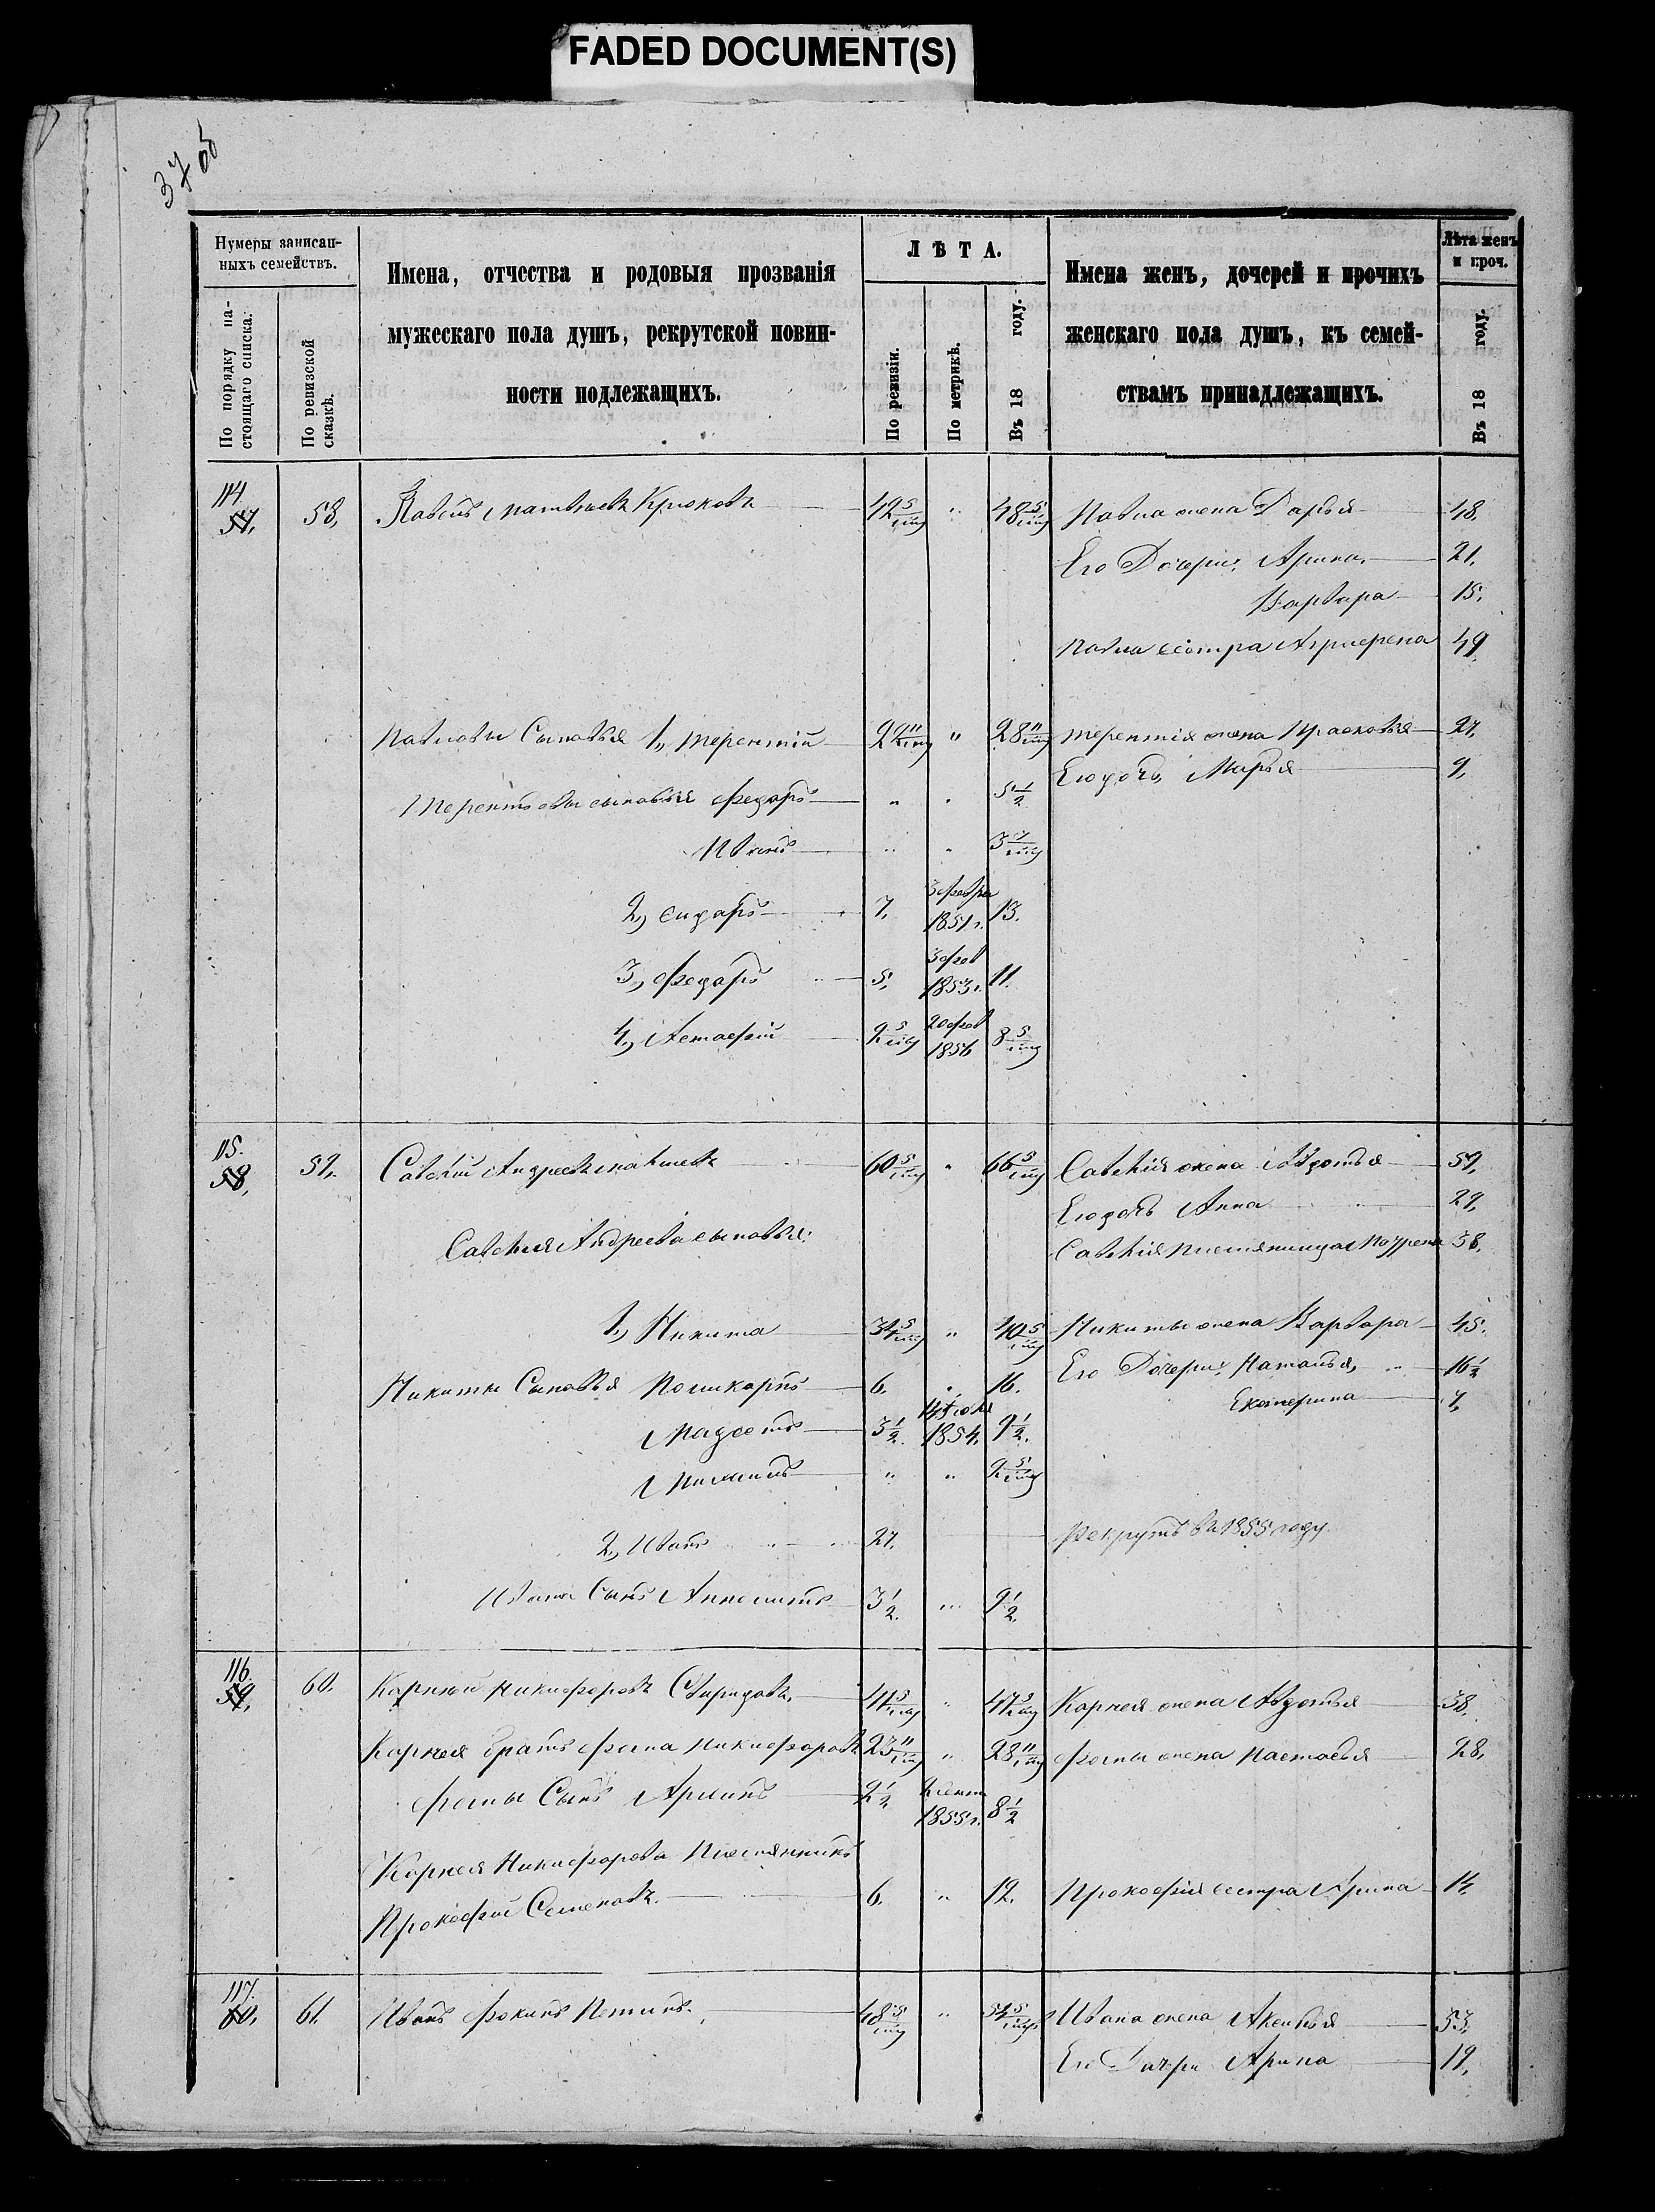 FADED DOCUMENT(S)
37 об
Нумеры записан-
ныхъ семействъ.
По порядку на-
стоящаго списка.
По ревизской
сказкѣ.
Имена, отчества и родовыя прозванія
мужескаго пола душъ, рекрутской повин-
ности подлежащихъ.
ЛѢТА.
По ревизіи.
По метрикѣ.
Въ 18 году.
Имена женъ, дочерей и прочихъ
женскаго пола душъ, къ семей-
ствамъ принадлежащихъ.
Лѣта женъ
и проч.
Въ 18 году.
114.
57, 58, Павелъ Матвѣевъ Крюковъ 42 5/ „ 48 5/ Павла жена Дарья 48.
Его Дочери: Арина 21,
Варвара 15,
Павла сестра Аграфена 49
Павловы Сыновья 1, Терентій 22 11/ „ 28 11/ Терентія жена Прасковья 27,
Его дочь Марья 9,
Терентьевы сыновья Федаръ „ „ 5 1/2
Иванъ „ „ 3
2, Сидаръ 7, 3 февра 1851 г. 13.
3, Федаръ 5, 3 фев 1853 г. 11.
4, Астафій 2 5/ 20 фев 1856 8 5/
115.
58, 59. Савелій Андреевъ 60 5/ „ 66 5/ Савелія жена Авдотья 59,
Его дочь Анна 29,
Савелія Андреева сыновья: Савелія племянница 38,
1, Никита 34 5/ „ 40 5/ Никиты жена Варвара 45.
Никиты Сыновья Поликарпъ 6. „ 16. Его Дочери: Наталья, 16 1/2
Екатерина 7,
Модестъ 3 1/2. 1854. 9 1/2.
„ „ 2 5/
2, Иванъ 27. Рекрутъ въ 1855 году.
Ивана Сынъ 3 1/2. „ 9 1/2.
116.
59, 60. Корней Никифоровъ Свиридовъ, 41 5/ „ 47 5/ Корнея жена Авдотья 38.
Корнея братъ Фома Никифоровъ „ 28 11/ Фомы жена Настасья 28,
Фомы Сынъ 2 1/2 2 сент 1855 г. 8 1/2
Корнея Никифорова Племянникъ
Прокофій Семеновъ. 6. „ 12. Прокофія сестра Арина 14.
117.
60, 61. Иванъ Фокинъ 48 5/ „ 54 5/ Ивана жена Аксинья 53,
Его Дочери Арина 19,